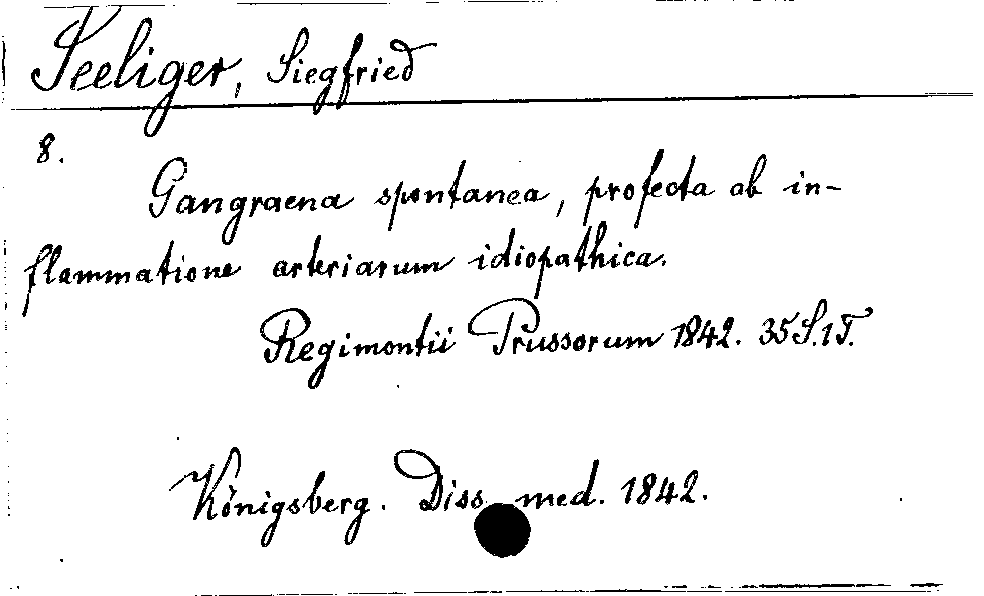 Seeliger, Siegfried
8.
Gangraena spontanea, profecta ab in-
flammatione arteriarum idiopathica.
Regimontii Prussorum 1842. 35 S. 1 T.
Königsberg. Diss. med. 1842.